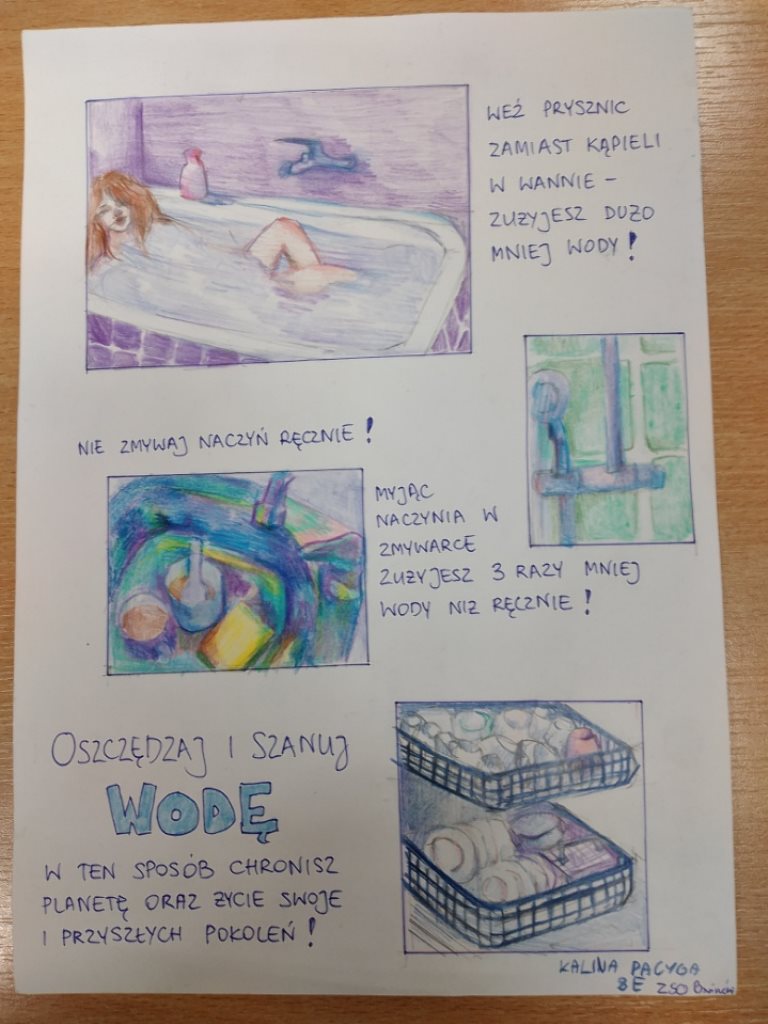 WEŹ PRYSZNIC
ZAMIAST KĄPIELI
W WANNIE –
ZUŻYJESZ DUŻO
MNIEJ WODY!
NIE ZMYWAJ NACZYŃ RĘCZNIE!
MYJĄC
NACZYNIA W
ZMYWARCE
ZUŻYJESZ 3 RAZY MNIEJ
WODY NIŻ RĘCZNIE!
OSZCZĘDZAJ I SZANUJ
WODĘ
W TEN SPOSÓB CHRONISZ
PLANETĘ ORAZ ŻYCIE SWOJE
I PRZYSZŁYCH POKOLEŃ!
KALINA PACYGA
8E ZSO